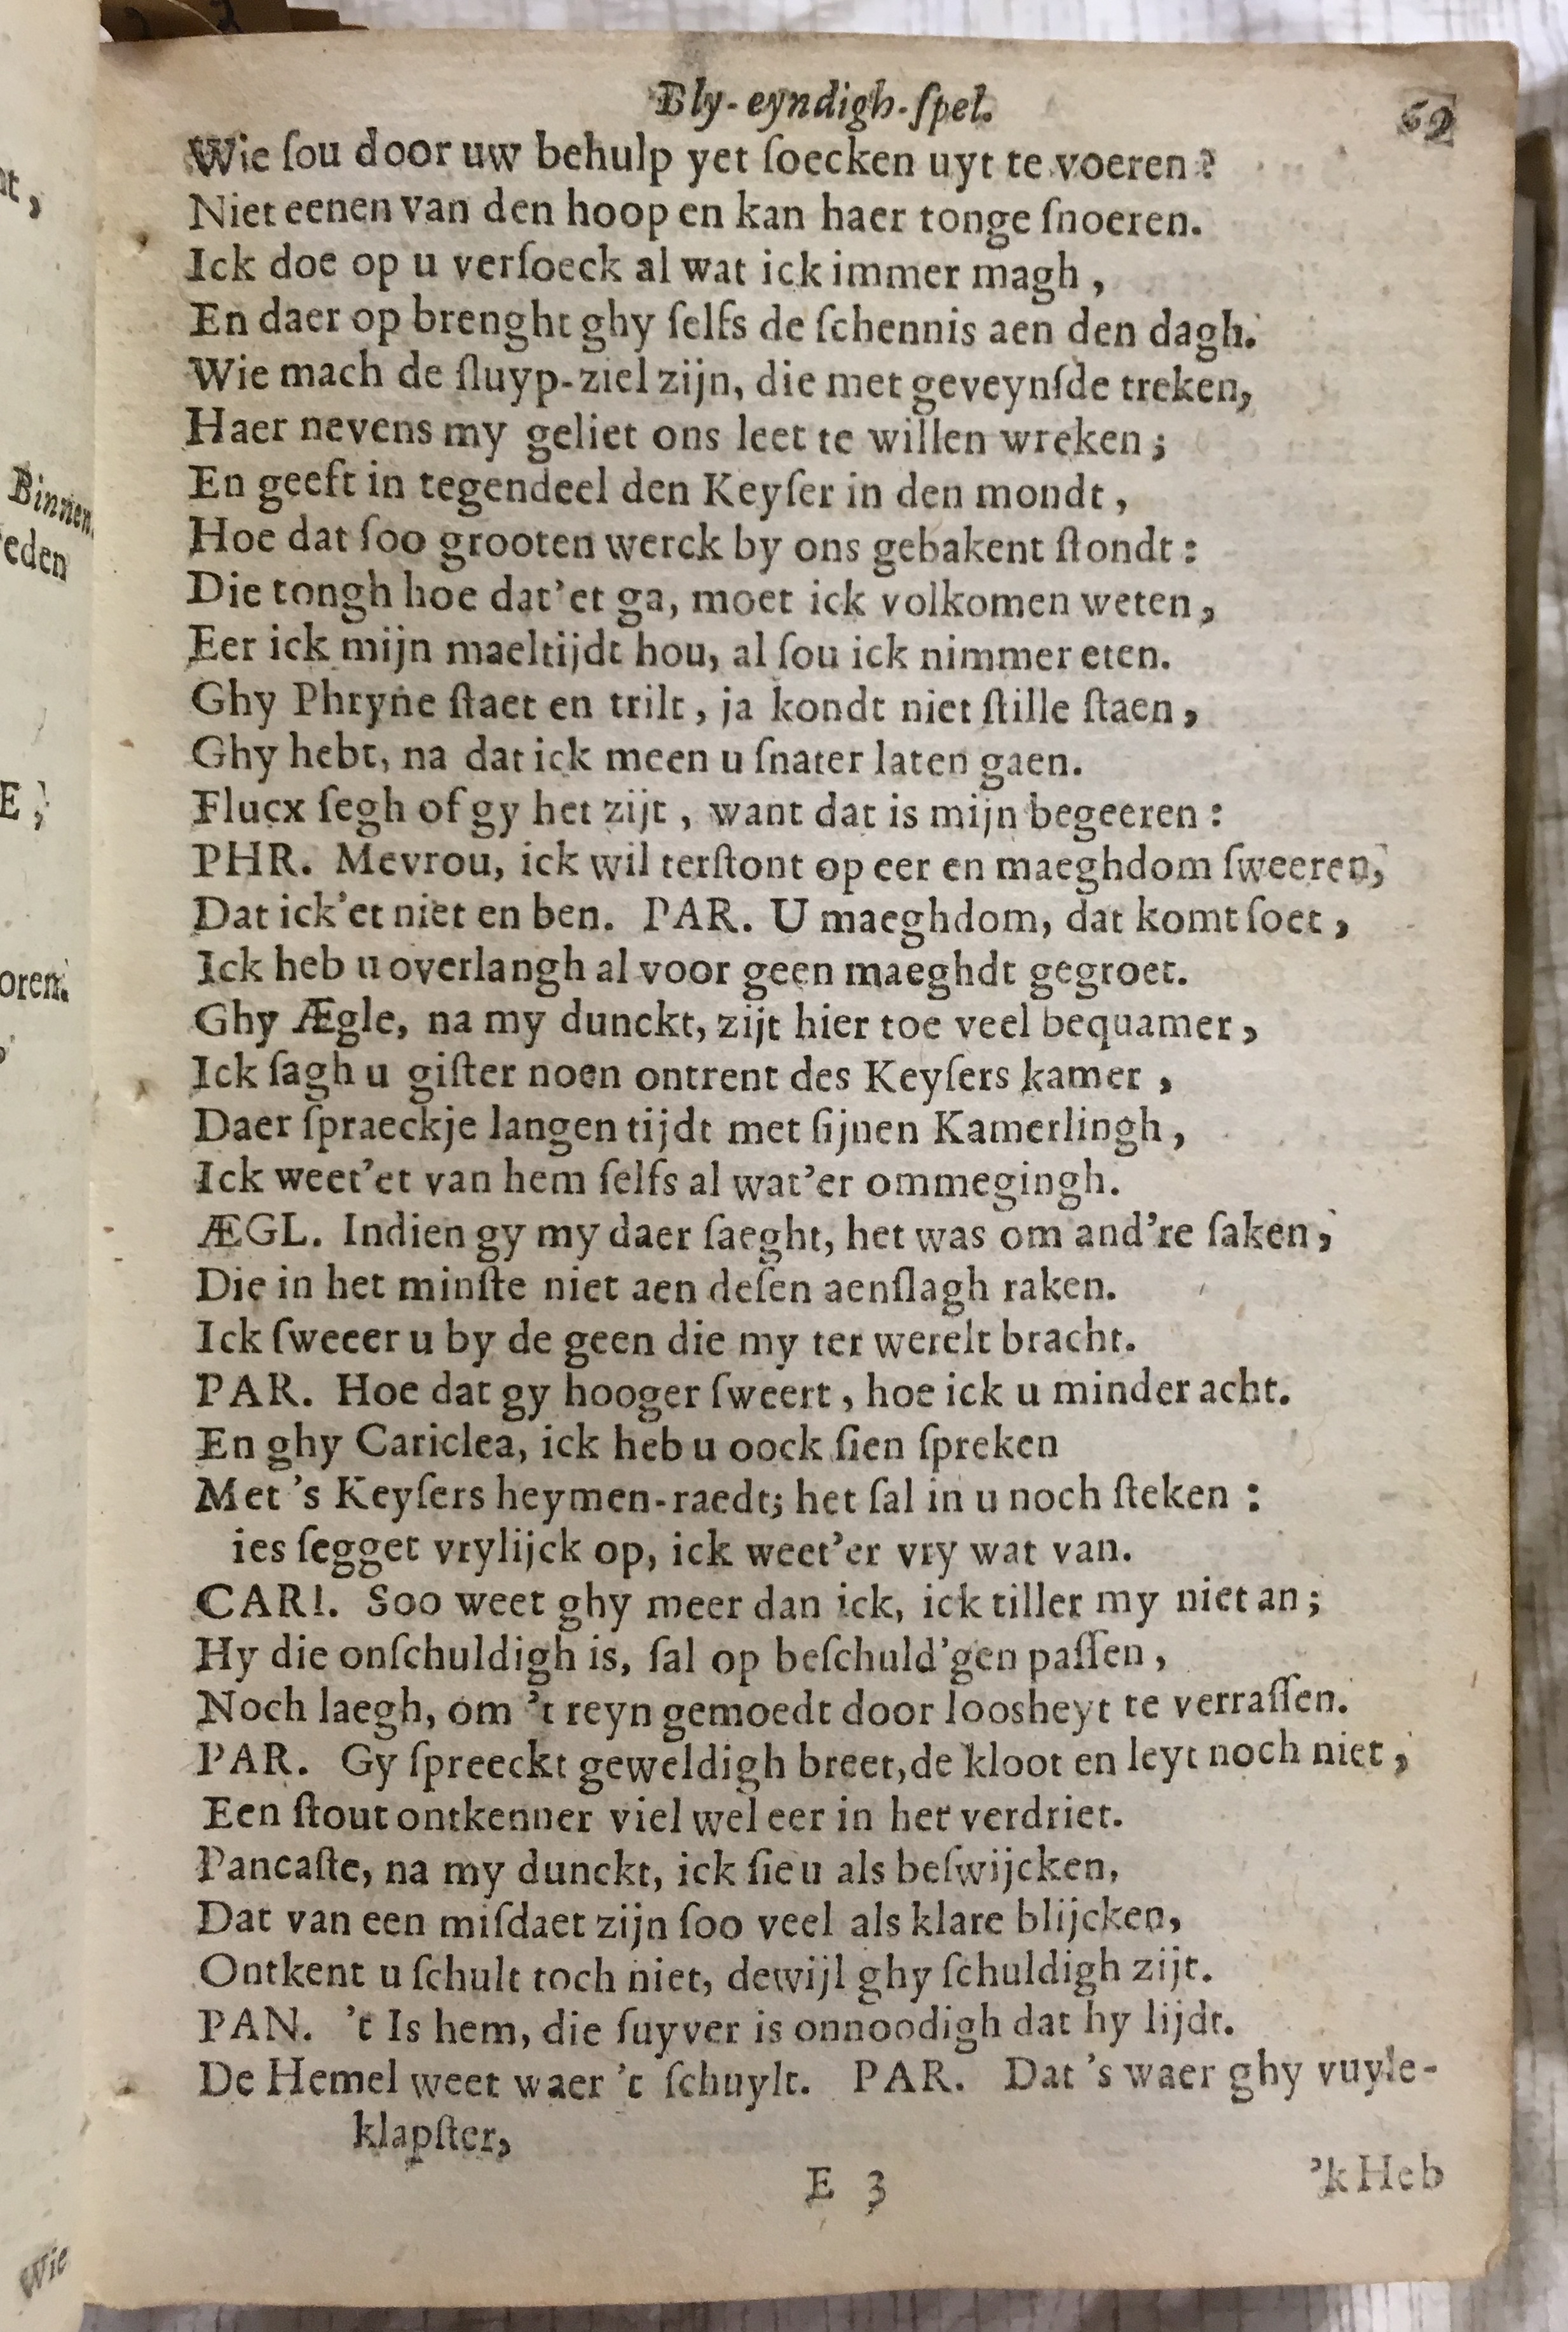 Bly-eyndigh-ſpel. 69
Wie ſou door uw behulp yet ſoecken uyt te voeren?
Niet eenen van den hoop en kan haer tonge ſnoeren.
Ick doe op u verſoeck al wat ick immer magh,
En daer op brenght ghy ſelfs de ſchennis aen den dagh.
Wie mach de ſluyp-ziel zijn, die met geveynſde treken,
Haer nevens my geliet ons leet te willen wreken;
En geeft in tegendeel den Keyſer in den mondt,
Hoe dat ſoo grooten werck by ons gebakent ſtondt:
Die tongh hoe dat'et ga, moet ick volkomen weten,
Eer ick mijn maeltijdt hou, al ſou ick nimmer eten.
Ghy Phryne ſtaet en trilt, ja kondt niet ſtille ſtaen,
Ghy hebt, na dat ick meen u ſnater laten gaen.
Flucx ſegh of gy het zijt, want dat is mijn begeeren:
PHR. Mevrou, ick wil terſtont op eer en maeghdom ſweeren,
Dat ick'et niet en ben. PAR. U maeghdom, dat komt ſoet,
Ick heb u overlangh al voor geen maeghdt gegroet.
Ghy Ægle, na my dunckt, zijt hier toe veel bequamer,
Ick ſagh u giſter noen ontrent des Keyſers kamer,
Daer ſpraeckje langen tijdt met ſijnen Kamerlingh,
Ick weet'et van hem ſelfs al wat'er ommegingh.
ÆGL. Indien gy my daer ſaeght, het was om and're ſaken,
Die in het minſte niet aen deſen aenſlagh raken.
Ick ſweeer u by de geen die my ter werelt bracht.
PAR. Hoe dat gy hooger ſweert, hoe ick u minder acht.
En ghy Cariclea, ick heb u oock ſien ſpreken
Met 's Keyſers heymen-raedt; het ſal in u noch ſteken:
ies ſegget vrylijck op, ick weet'er vry wat van.
CARI. Soo weet ghy meer dan ick, ick tiller my niet an;
Hy die onſchuldigh is, ſal op beſchuld'gen paſſen,
Noch laegh, om 't reyn gemoedt door loosheyt te verraſſen.
PAR. Gy ſpreeckt geweldigh breet, de kloot en leyt noch niet,
Een ſtout ontkenner viel wel eer in het verdriet.
Pancaſte, na my dunckt, ick ſie u als beſwijcken,
Dat van een miſdaet zijn ſoo veel als klare blijcken,
Ontkent u ſchult toch niet, dewijl ghy ſchuldigh zijt.
PAN. 't Is hem, die ſuyver is onnoodigh dat hy lijdt.
De Hemel weet waer 't ſchuylt. PAR. Dat 's waer ghy vuyle-
klapſter,
E 3 'k Heb
Binnen.
eden
E;
oren.
Wie